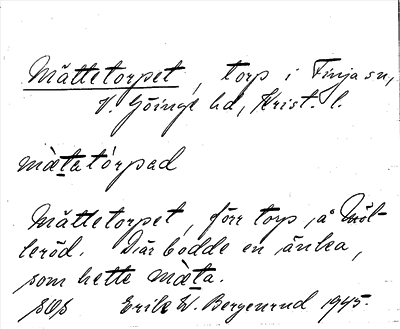 Mättetorpet, torp i Finja sn,
V. Göinge hd, Krist. l.
mæ̀tatórpad
Mättetorpet, förr torp, å Möl-
leröd. Där bodde en änka,
som hette mæ̀ta.
SOS Erik W. Bergenrud 1945.